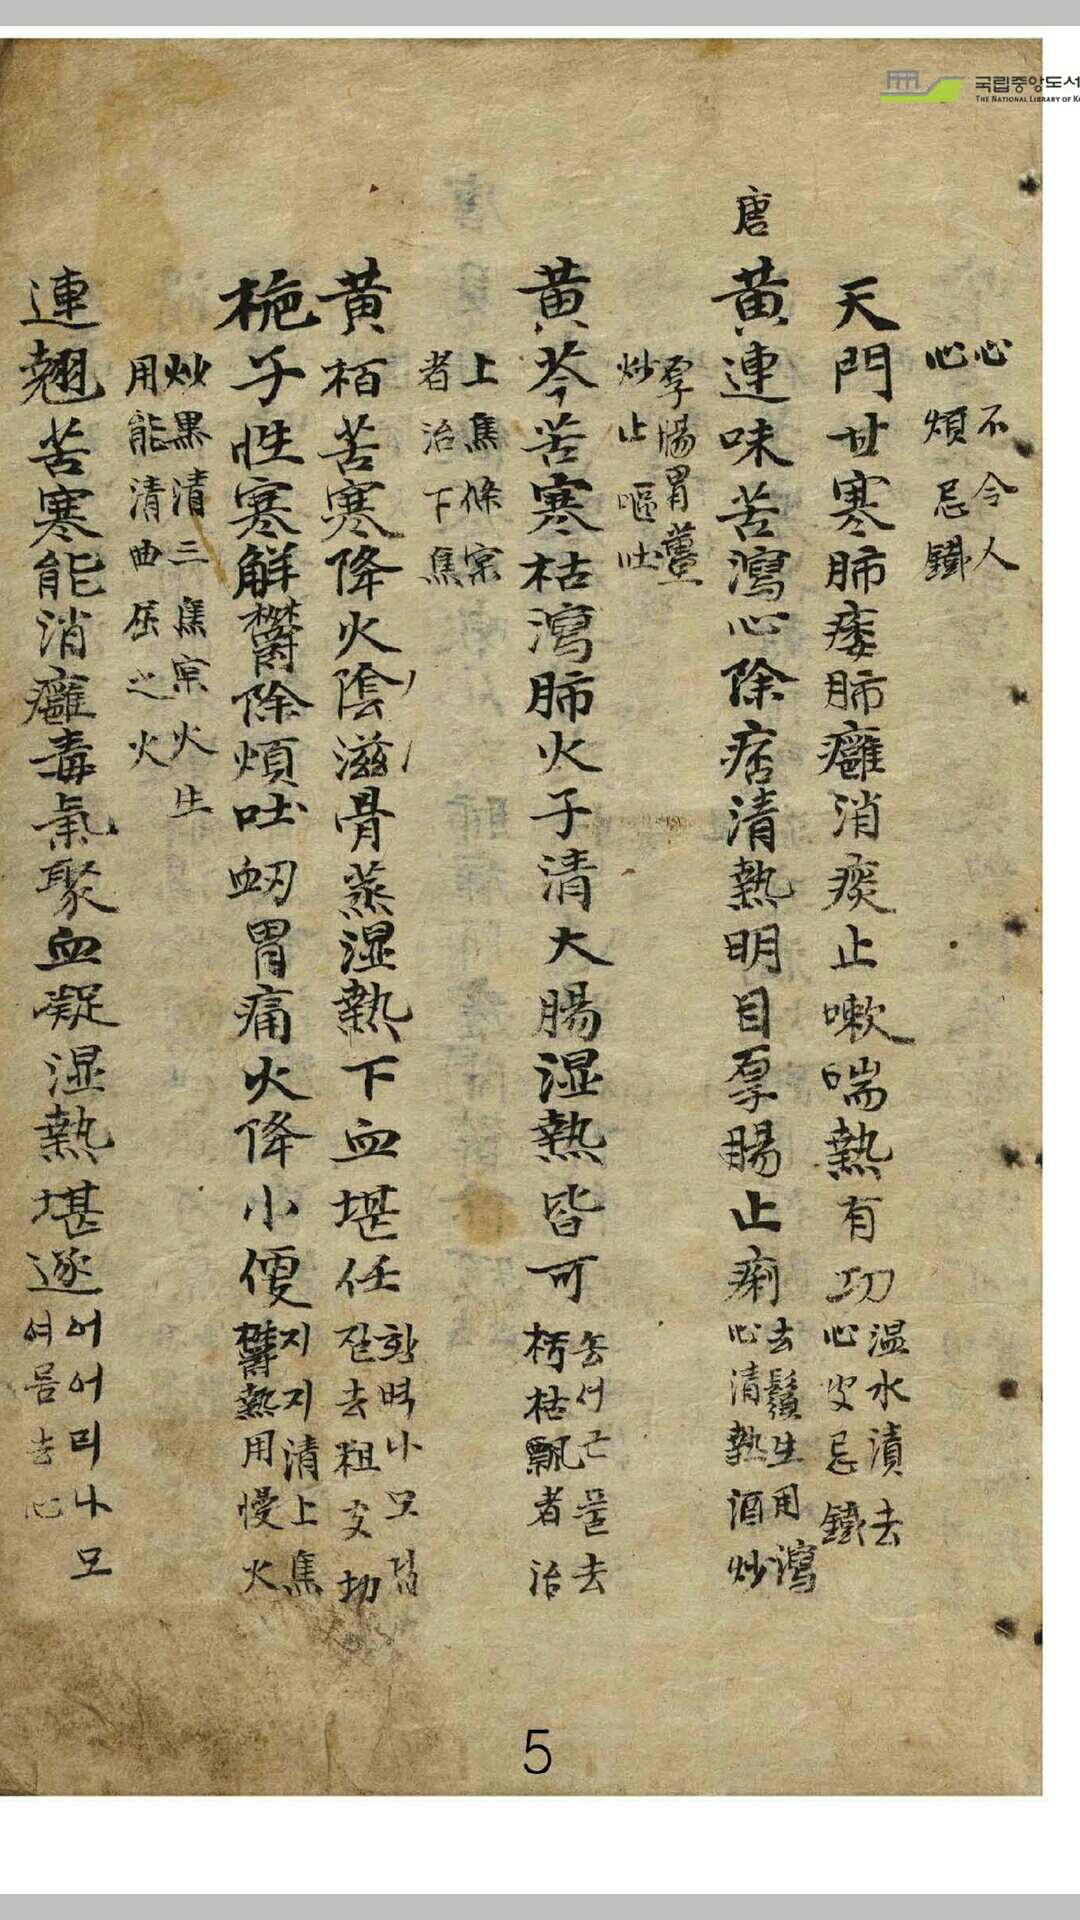 국립중앙도서
THE NATIONAL LIBRARY OF K
心不令人
心煩忌鐵
天門甘寒肺痿肺癰消痰止嗽喘熱有功
温水漬去
心皮忌鐵
唐
黃連味苦瀉心除痞清熱明目厚腸止痢
去鬚生用瀉
心清熱酒炒
厚腸胃薑
炒止嘔吐
黃芩苦寒枯瀉肺火子清大腸濕熱皆可
솝서근플去
朽枯飄者治
上焦條宲
者治下焦
黃栢苦寒降火滋陰骨蒸湿熱下血堪任
황벽나모겁
질去粗皮切
梔子性寒解欝除煩吐衂胃痛火降小便
지지清上焦
欝熱用慢火
炒黒清三焦宲火生
用能清曲屈之火
連翹苦寒能消癰毒氣聚血凝湿熱堪逐
어어리나모
여름去心
5